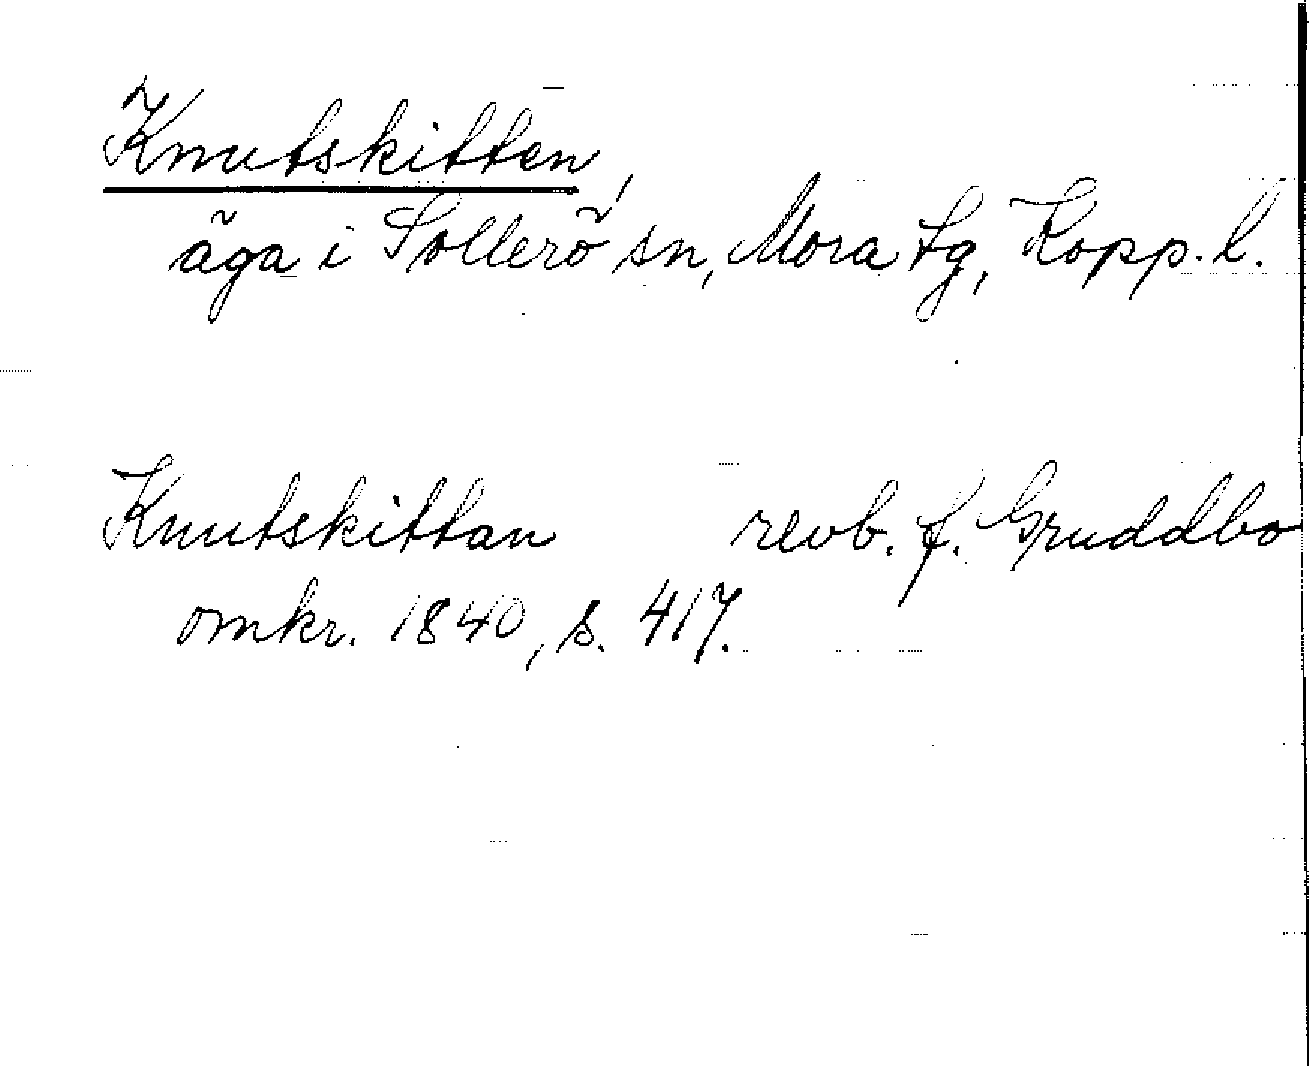 Knutskitten,
äga i Sollerö sn, Mora tg, Kopp. l.
Knutskittan revb. f. Gruddbo
omkr. 1840, s. 417.